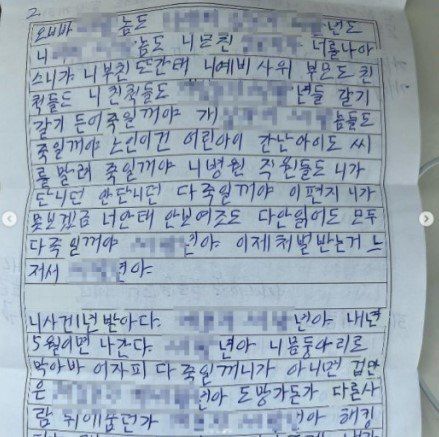 2.
오빠바 놈도 년도
니 놈도 니모친 너를나아
스니까 니부친도간태 니예비 사위 부모도 친
척들도 니친척들도 년들 갈기
갈기 뜯어죽일꺼야 개 놈들도
죽일꺼야 노인이건 어린아이 간난아이도 씨
를말려 죽일꺼야 니병원 직원들도 니가
다니던 안다니던 다죽일꺼야 이편지 니가
못보겠금 너안태 안보여조도 다안읽어도 모두
다죽일꺼야 년아 이제처벌받는거 느
저서 년아
니사건1년받아다. 년아 내년
5월이면 나간다. 년아 니몸둥아리로
막아바 어차피 다죽일꺼니가 아니면 겁만
은 년아 도망가든가 다른사
람 뒤에숨던가 년아